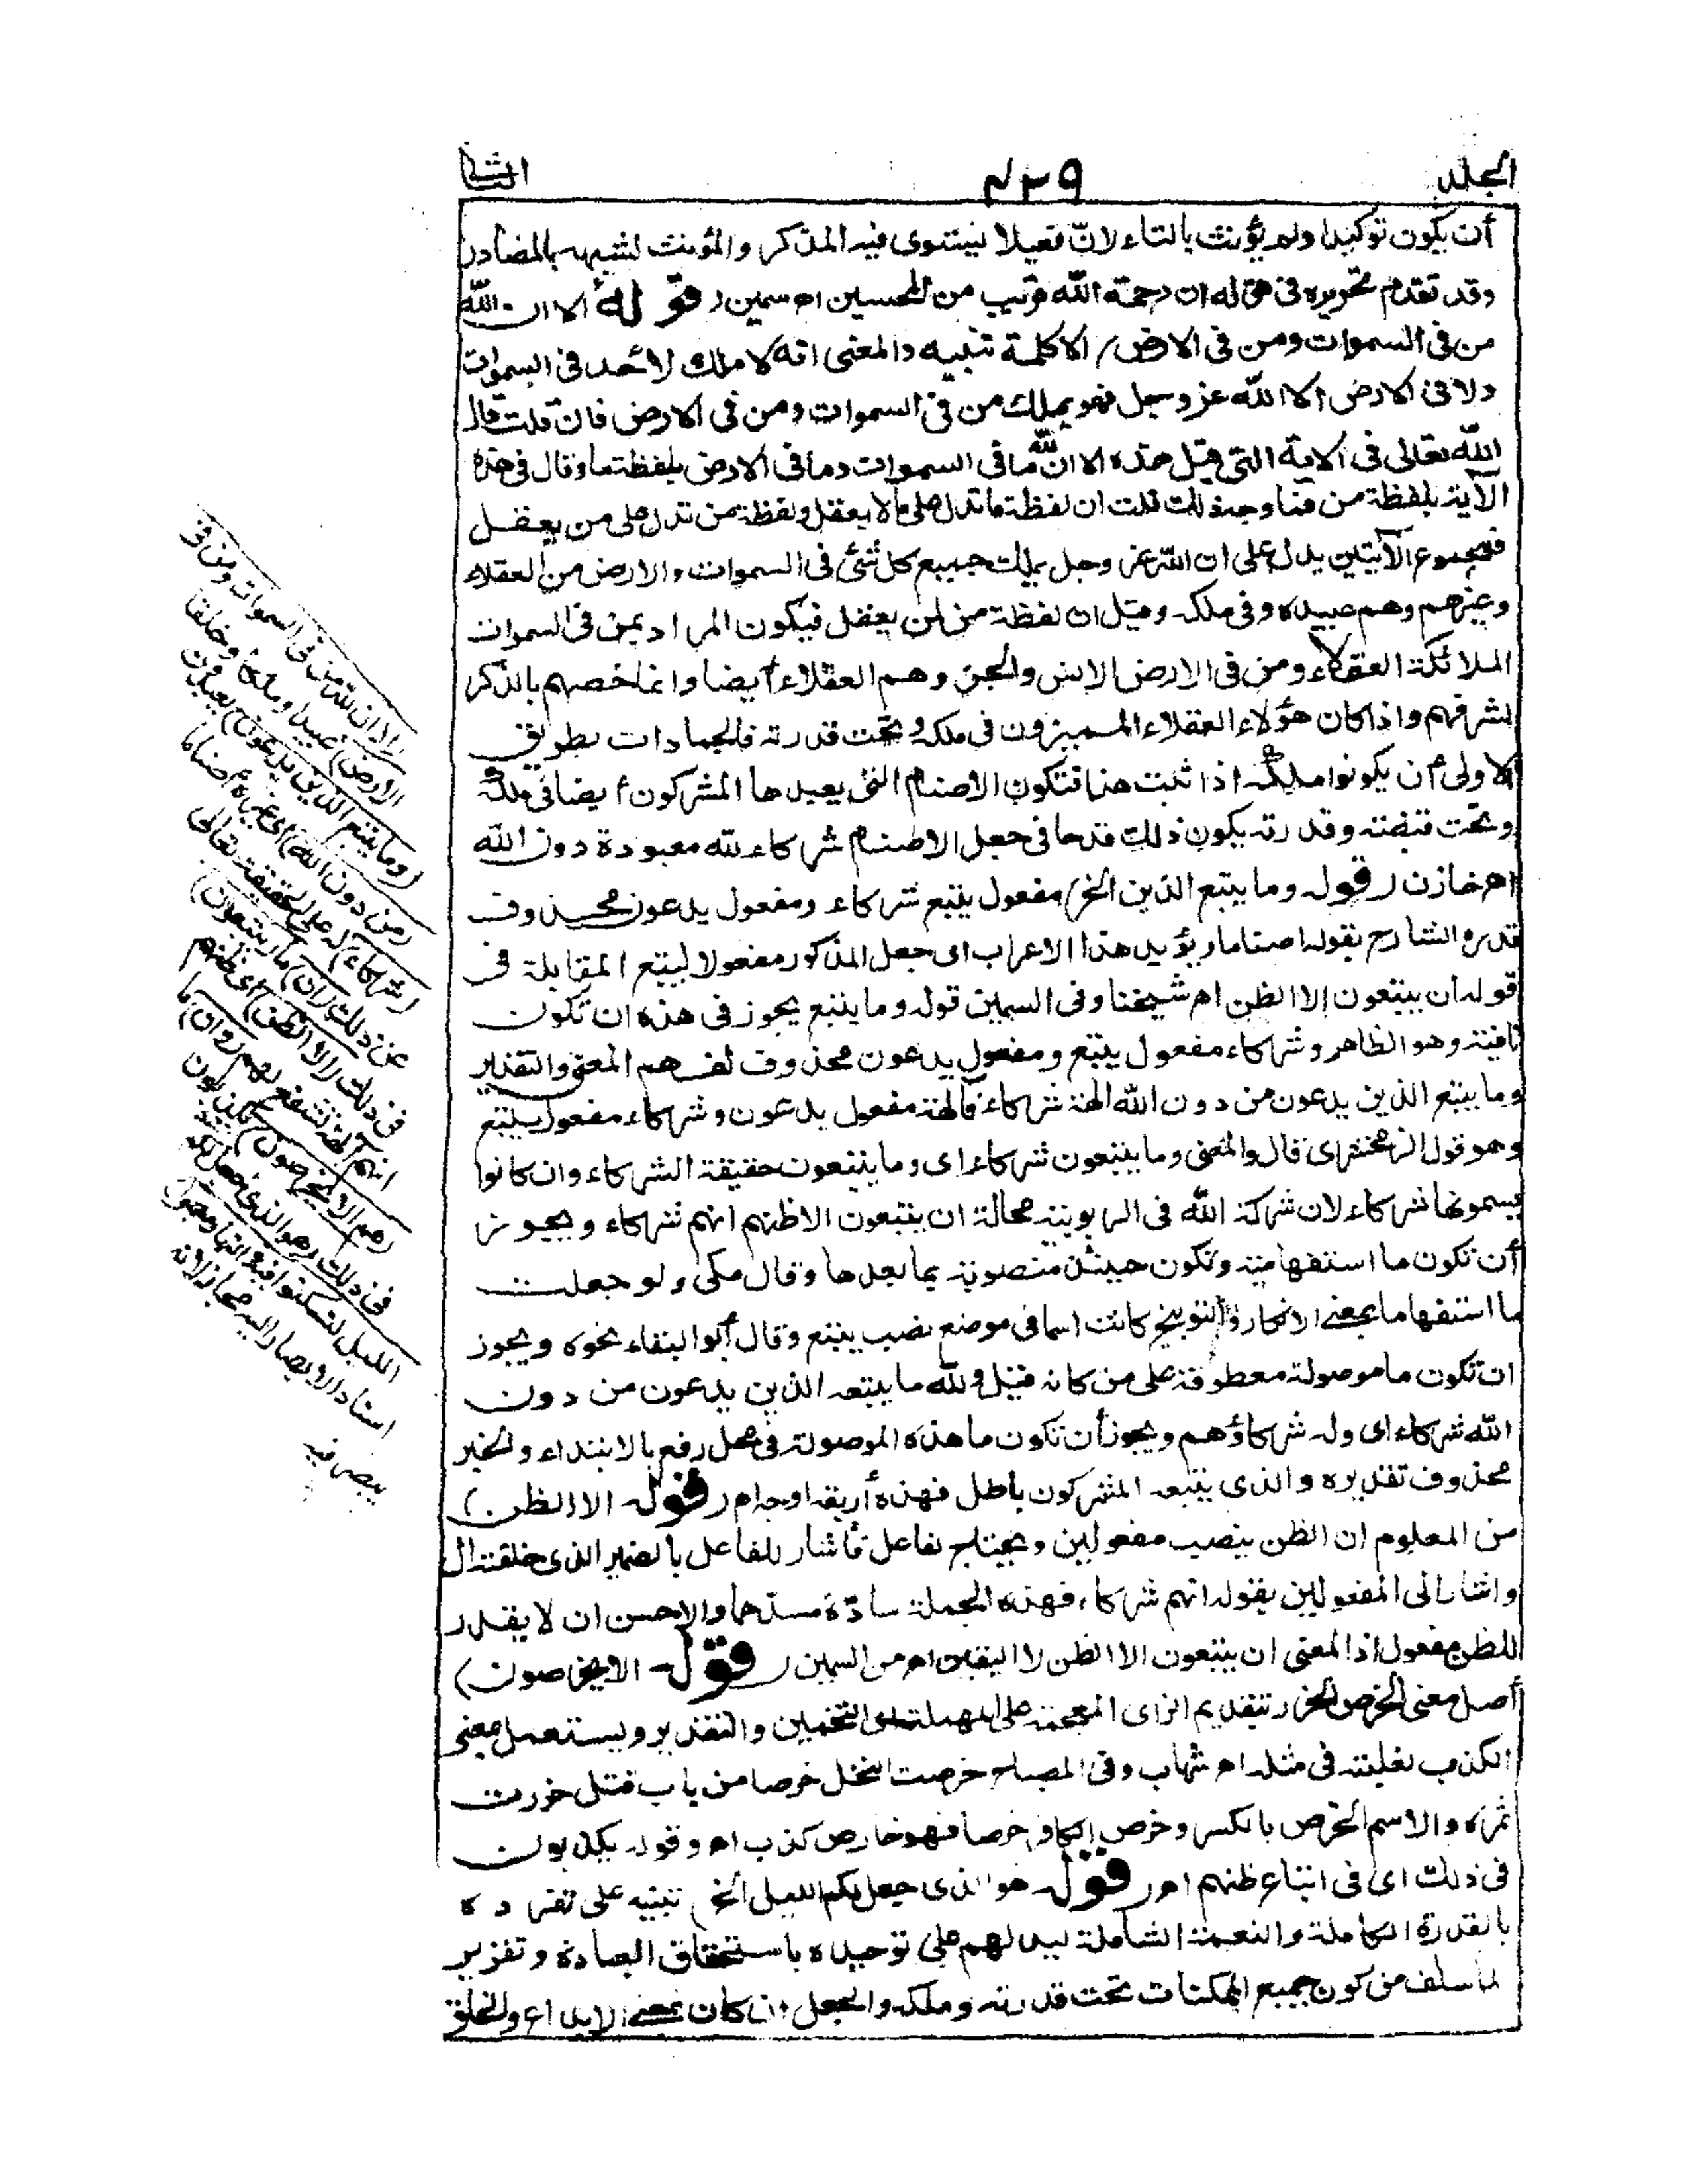 المجلد ٤٣٩ الثانى
أن يكون توكيدا ولم يؤنث بالتاء لانّ فعيلا يستوى فيه المذكر والمؤنث لشبهه بالمصادر
وقد تقدم تحريره فى قوله ان رحمة الله قريب من المحسنين اه سمين (قوله ألا ان لله
من فى السموات ومن فى الارض) الا كلمة تنبيه والمعنى انه لا ملك لأحد فى السموات
ولا فى الارض الا الله عز وجل فهو يملك من فى السموات ومن فى الارض فان قلت قال
الله تعالى فى الاية التى قبل هذه الا ان لله ما فى السموات وما فى الارض بلفظة ما وقال فى هذه
الآية بلفظة من فما وجه ذلك قلت ان لفظة ما تدل على ما لا يعقل ولفظة من تدل على من يعقل
فمجموع الآيتين يدل على ان الله عز وجل يملك جميع كل شئ فى السموات والارض من العقلاء
وغيرهم وهم عبيده وفى ملكه وقيل ان لفظة من لمن يعقل فيكون المراد بمن فى السموات
الملائكة العقلاء ومن فى الارض الانس والجن وهم العقلاء أيضا وانما خصهم بالذكر
لشرفهم واذا كان هؤلاء العقلاء المميزون فى ملكه وتحت قدرته فالجمادات بطريق
الاولى أن يكونوا ملكه اذا ثبت هذا فتكون الاصنام التى يعبدها المشركون أيضا فى ملكه
وتحت قبضته وقدرته يكون ذلك قدحا فى جعل الاصنام شركاء لله معبودة دون الله
اه خازن (قوله وما يتبع الذين الخ) مفعول يتبع شركاء ومفعول يدعون محذوف
قدره الشارح بقوله اصناما ويؤيد هذا الاعراب اى جعل المذكور مفعولا ليتبع المقابلة فى
قوله ان يتبعون إلا الظن اه شيخنا وفى السمين قوله وما يتبع يجوز فى هذه ان تكون
نافية وهو الظاهر وشركاء مفعول يتبع ومفعول يدعون محذوف لفهم المعنى والتقدير
وما يتبع الذين يدعون من دون الله آلهة شركاء فآلهة مفعول يدعون وشركاء مفعول يتبع
وهو قول الزمخشرى قال والمعنى وما يتبعون شركاء اى وما يتبعون حقيقة الشركاء وان كانوا
يسمونها شركاء لان شركة الله فى الربوبية محالة ان يتبعون الا ظنهم انهم شركاء ويجوز
أن تكون ما استفهامية وتكون حينئذ منصوبة بما بعدها وقال مكى ولو جعلت
ما استفهاما بمعنى الانكار والتوبيخ كانت اسما فى موضع نصب يتبع وقال أبو البقاء نحوه ويجوز
ان تكون ما موصولة معطوفة على من كانه قيل ولله ما يتبعه الذين يدعون من دون
الله شركاء اى وله شركاؤهم ويجوز أن تكون ما هذه الموصولة فى محل رفع بالابتداء والخبر
محذوف تقديره والذى يتبعه المشركون باطل فهذه أربعة اوجه اه (قوله الا الظن)
من المعلوم ان الظن ينصب مفعولين ويحتاج لفاعل فأشار للفاعل بالضمير الذى خلفته ال
واشار الى المفعولين بقوله انهم شركاء، فهذه الجملة سادّة مسدهما والاحسن ان لا يقدر
للظن مفعول اذ المعنى ان يتبعون الا الظن لا اليقين اه من السمين (قوله الا يخرصون)
أصل معنى الخرص الحزر بتقديم الزاى المعجمة على المهملة اى التخمين والتقدير ويستعمل بمعنى
الكذب لغلبته فى مثله اه شهاب وفى المصباح خرصت النخل خرصا من باب قتل حزرت
ثمره والاسم الخرص بالكسر وخرص الكافر خرصا فهو خارص كذب اه وقوله يكذبون
فى ذلك اى فى اتباع ظنهم اه (قوله هو الذى جعل لكم الليل الخ) تنبيه على تفرده
بالقدرة الكاملة والنعمة الشاملة ليدلهم على توحيده باستحقاق العبادة وتقرير
لما سلف من كون جميع الممكنات تحت قدرته وملكه والجعل ان كان بمعنى الابداع والخلق
(الا ان لله من فى السموات ومن فى
الارض) عبيدا وملكا وخلقا
(وما يتبع الذين يدعون) يعبدون
(من دون الله) اى غيره أصناما
(شركاء) له على الحقيقة تعالى
عن ذلك (ان) ما (يتبعون)
فى ذلك (الا الظن) اى ظنهم
انهم آلهة تشفع لهم (وان) ما
(هم الا يخرصون) يكذبون
فى ذلك (هو الذى جعل لكم
الليل لتسكنوا فيه والنهار مبصرا)
اسناد الابصار اليه مجاز لانه
يبصر فيه